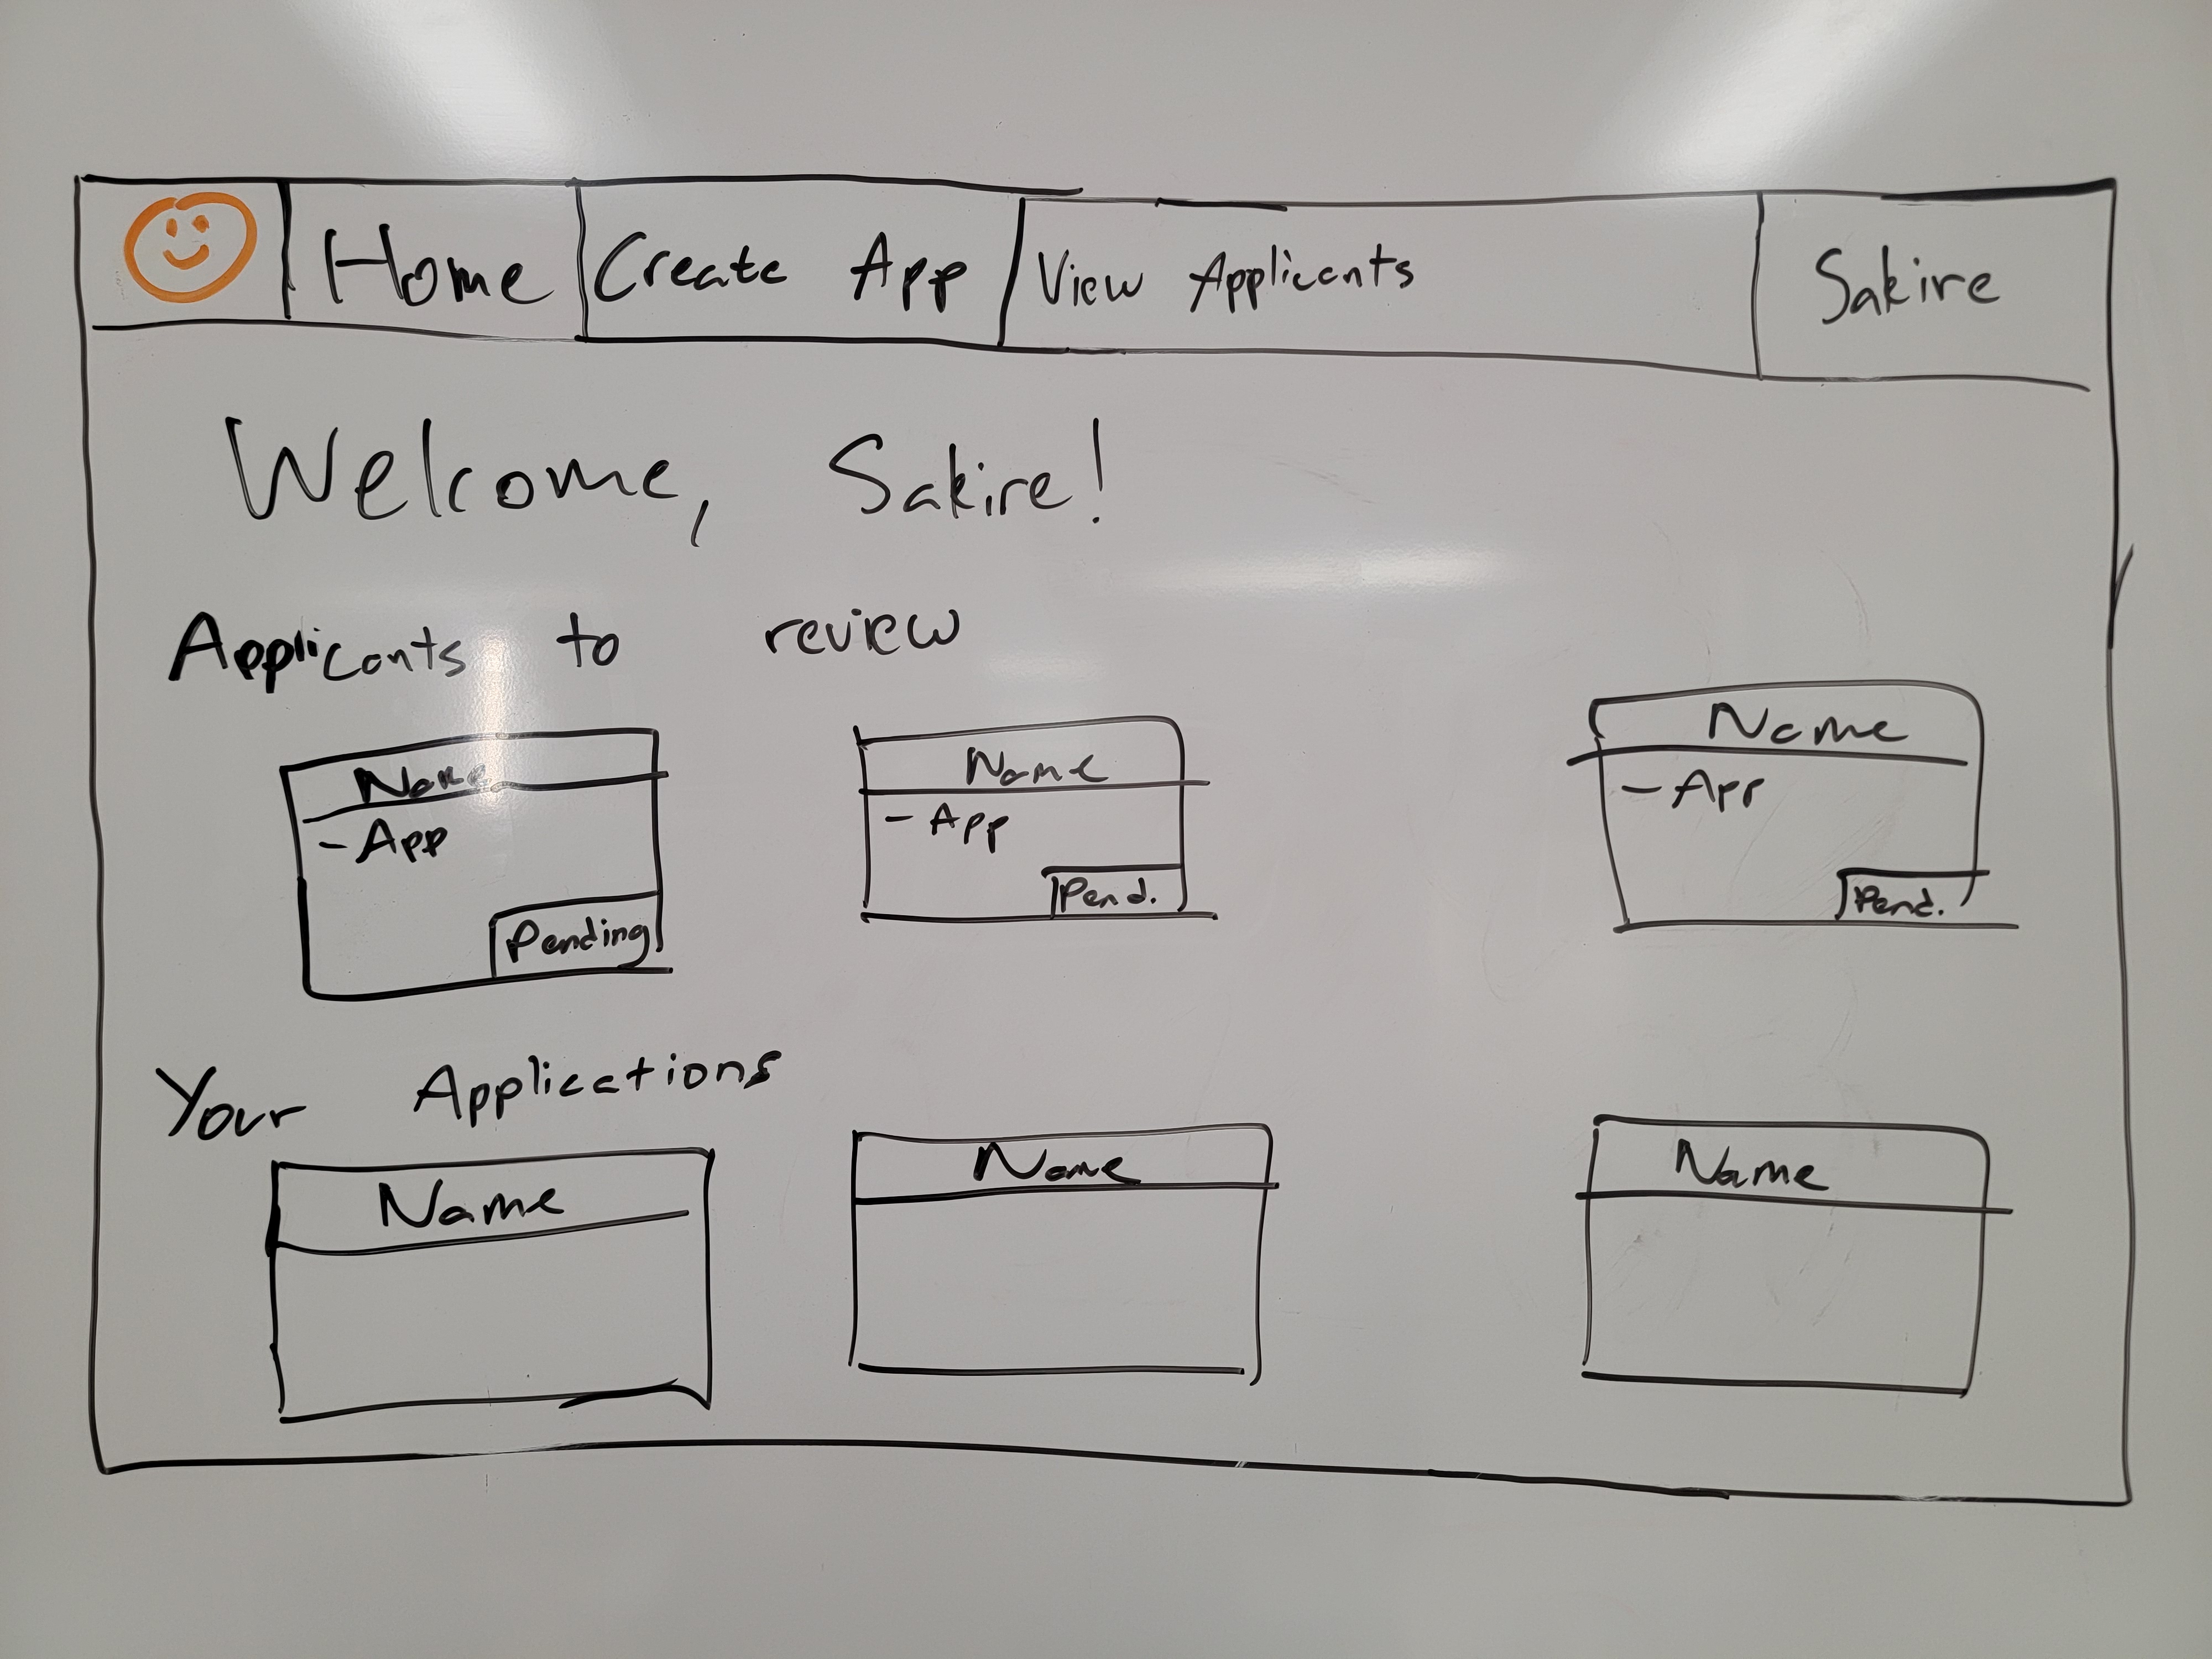 Home Create App View Applicants Sakire
Welcome, Sakire!
Applicants to review
Name Name Name
- App - App - App
Pending Pend. Pend.
Your Applications
Name Name Name